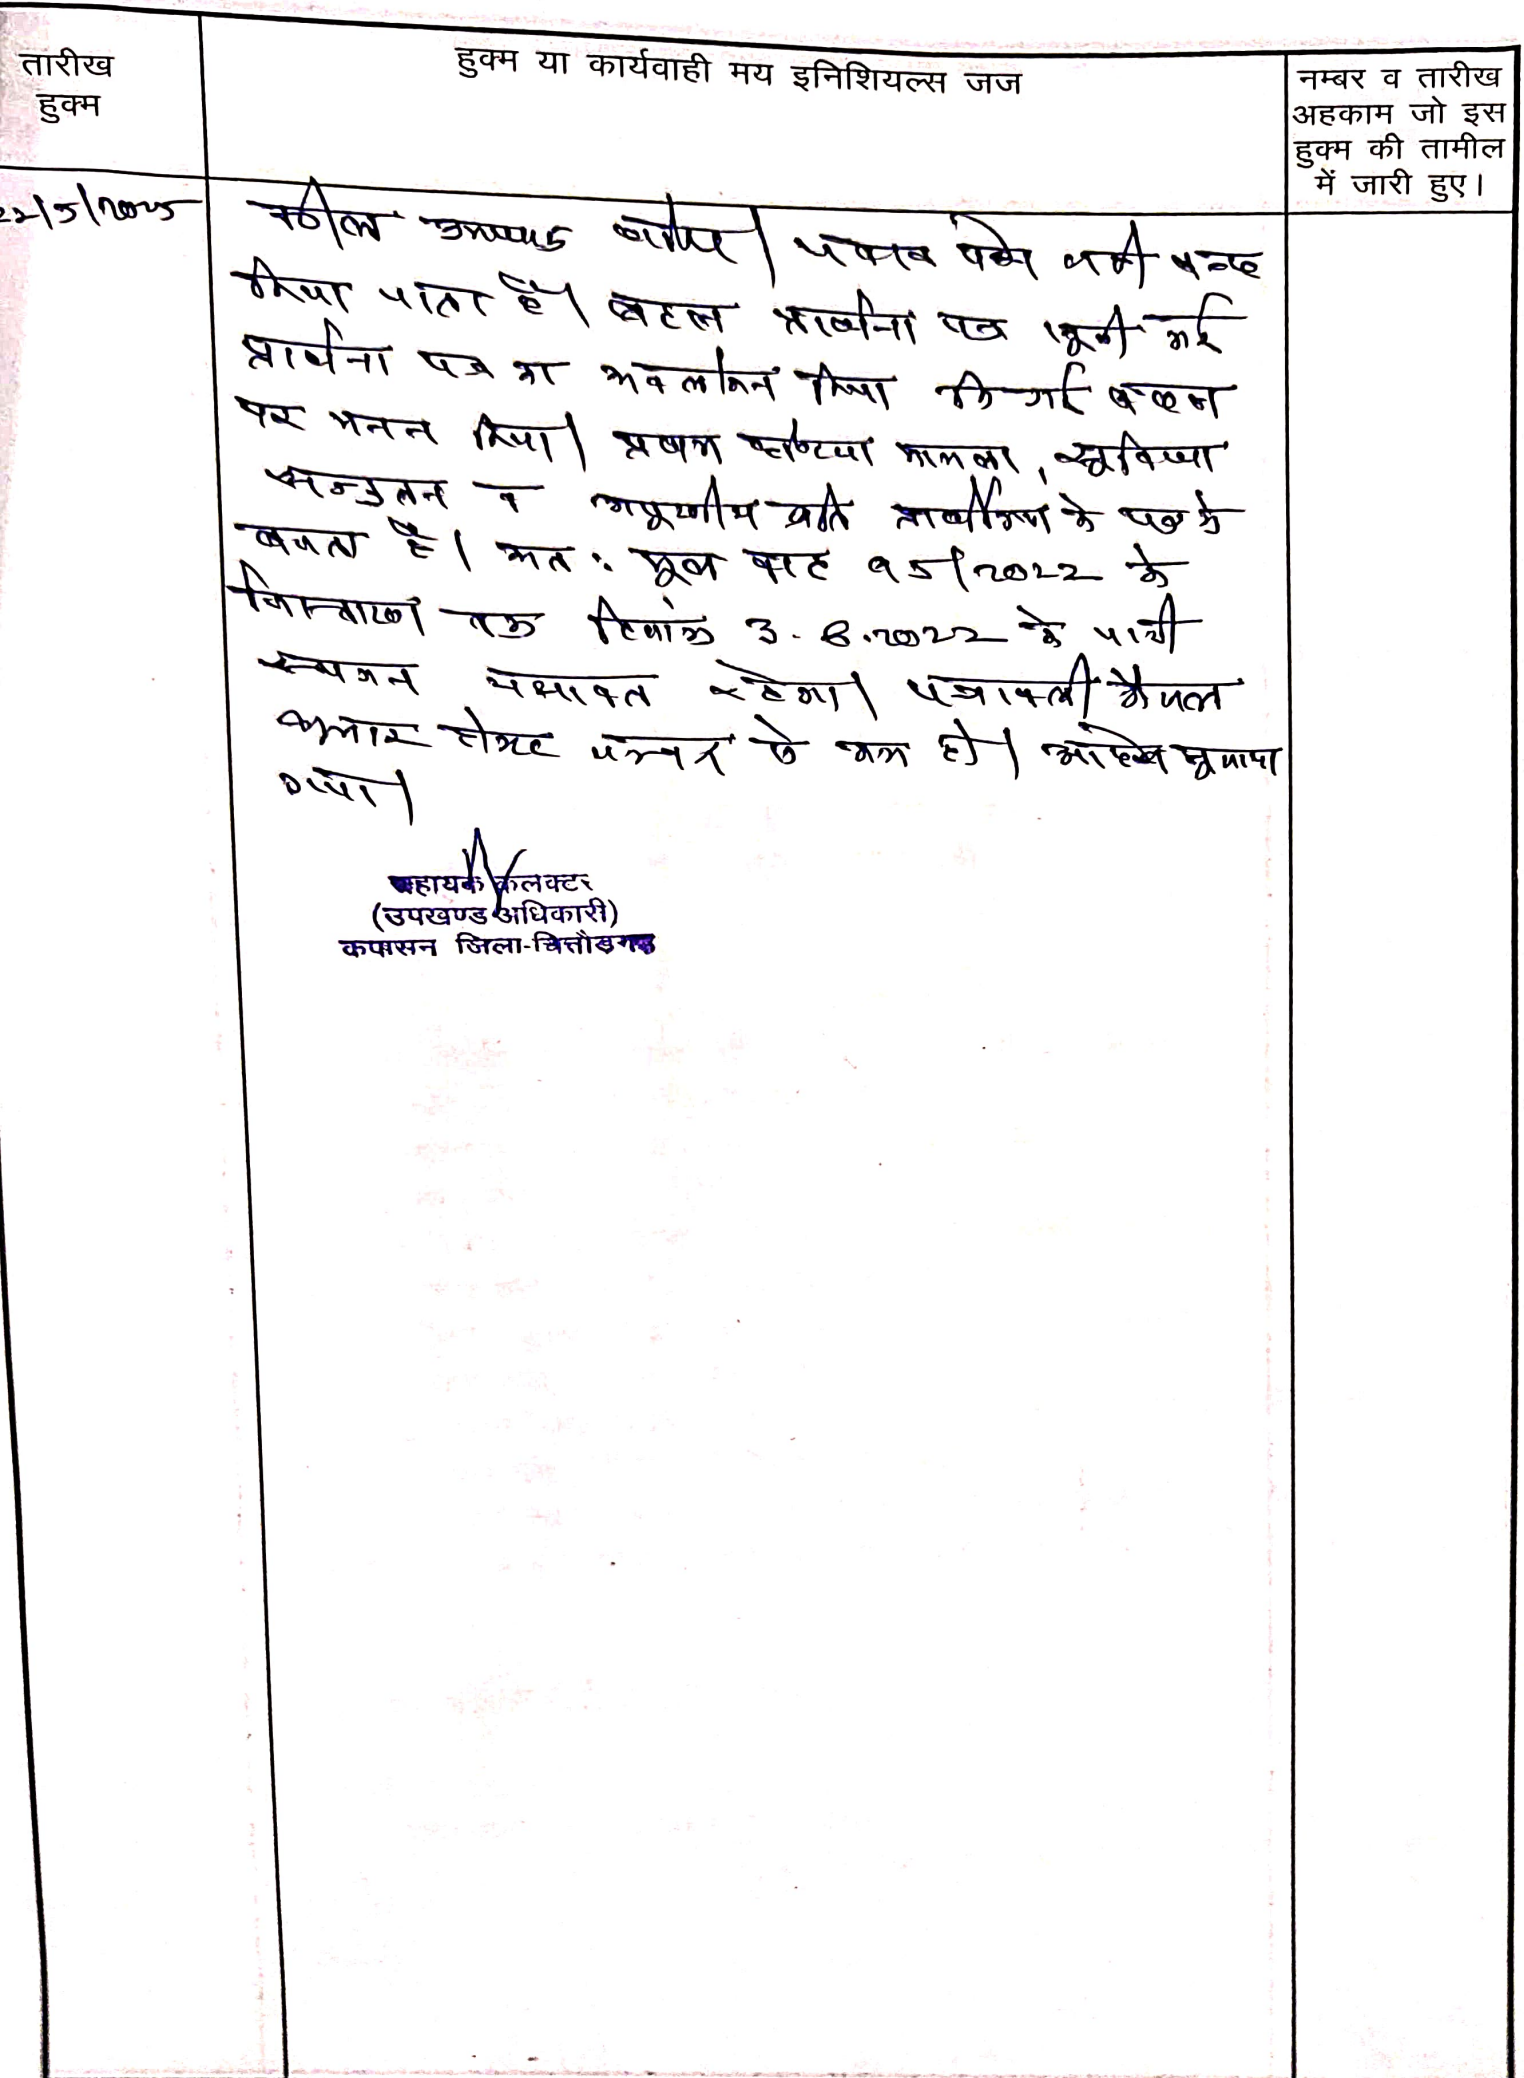 तारीख
हुक्म
हुक्म या कार्यवाही मय इनिशियल्स जज
नम्बर व तारीख
अहकाम जो इस
हुक्म की तामील
में जारी हुए।
22/5/2025
वकील उभयपक्ष उपस्थित। जवाब पेश नहीं बन्द
किया जाता है। बहस प्रार्थना पत्र सुनी गई
प्रार्थना पत्र का अवलोकन किया कि गई बहस
पर मनन किया। प्रथम दृष्टया मामला, सुविधा
सन्तुलन व अपूरणीय क्षति प्रार्थीगण के पक्ष में
बनता है। अतः मूल वाद 95/2022 के
निस्तारण तक दिनांक 3.8.2022 के जारी
स्थगन यथावत रहेगा। पत्रावली फैसल
शुमार होकर नम्बर से कम हो। आदेश सुनाया
गया।
सहायक कलक्टर
(उपखण्ड अधिकारी)
कपासन जिला-चित्तौड़गढ़